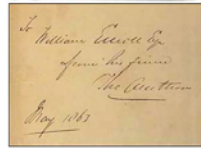 To
William Ewell Esq
from his friend
The Author
May 1863